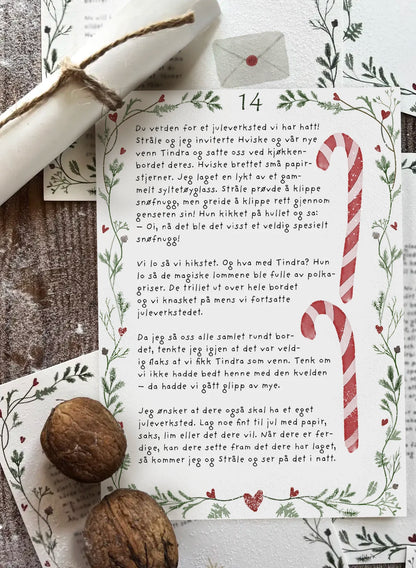 14
Du verden for et juleverksted vi har hatt!
Stråle og jeg inviterte Hviske og vår nye
venn Tindra og satte oss ved kjøkken-
bordet deres. Hviske brettet små papir-
stjerner. Jeg laget en lykt av et gam-
melt syltetøyglass. Stråle prøvde å klippe
snøfnugg, men greide å klippe rett gjennom
genseren sin! Hun kikket på hullet og sa:
– Oi, nå det ble det visst et veldig spesielt
snøfnugg!
Vi lo så vi hikstet. Og hva med Tindra? Hun
lo så de magiske lommene ble fulle av polka-
griser. De trillet ut over hele bordet
og vi knasket på mens vi fortsatte
juleverkstedet.
Da jeg så oss alle samlet rundt bor-
det, tenkte jeg igjen at det var veld-
ig flaks at vi fikk Tindra som venn. Tenk om
vi ikke hadde bedt henne med den kvelden
– da hadde vi gått glipp av mye.
Jeg ønsker at dere også skal ha et eget
juleverksted. Lag noe fint til jul med papir,
saks, lim eller det dere vil. Når dere er fer-
dige, kan dere sette fram det dere har laget,
så kommer jeg og Stråle og ser på det i natt.